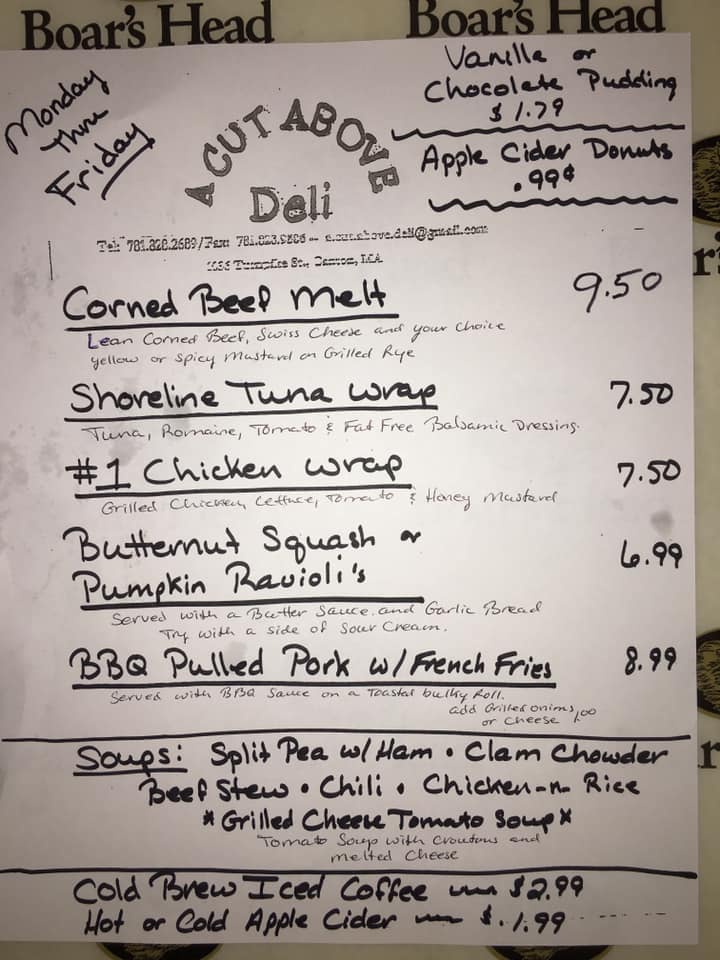 Boar's Head
Boar's Head
Monday
thru
Friday
Vanilla or
Chocolate Pudding
$1.79
Apple Cider Donuts
.99¢
A CUT ABOVE
Deli
Tel: 781.828.2689/Fax: 781.823.9586 -- a.cut.above.deli@gmail.com
Turnpike St., Canton, MA
Corned Beef Melt 9.50
Lean Corned Beef, Swiss Cheese and your choice
yellow or spicy Mustard on Grilled Rye
Shoreline Tuna Wrap 7.50
Tuna, Romaine, Tomato & Fat Free Balsamic Dressing.
#1 Chicken Wrap 7.50
Grilled Chicken, Lettuce, Tomato & Honey Mustard
Butternut Squash or 6.99
Pumpkin Ravioli's
Served with a Butter Sauce and Garlic Bread
Try with a side of Sour Cream.
BBQ Pulled Pork w/French Fries 8.99
Served with BBQ Sauce on a Toasted bulky Roll.
add Grilled onions 1.00
or Cheese 1.00
Soups: Split Pea w/ Ham • Clam Chowder
Beef Stew • Chili • Chicken-n-Rice
* Grilled Cheese Tomato Soup *
Tomato Soup with Croutons and
Melted Cheese
Cold Brew Iced Coffee $2.99
Hot or Cold Apple Cider $.1.99